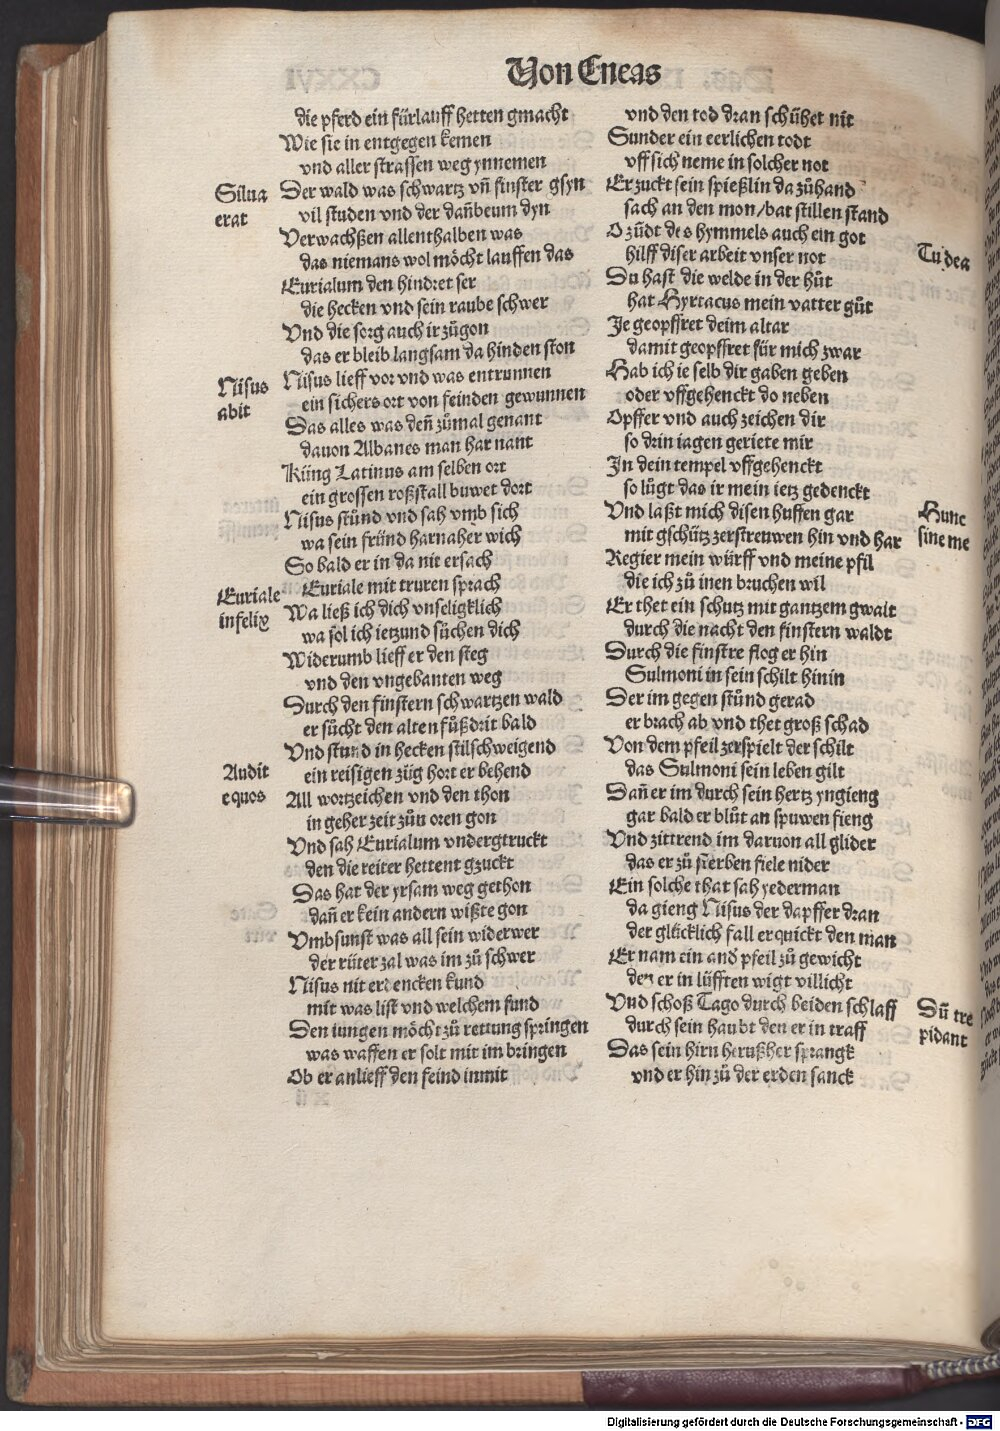 Von Eneas
die pferd ein fürlauff hetten gmacht
Wie sie in entgegen kemen
vnd aller strassen weg ynnemen
Silua
erat
Der wald was schwartz vñ finster gsyn
vil studen vnd der dañbeum dyn
Verwachßen allenthalben was
das niemans wol möcht lauffen das
Eurialum den hindret ser
die hecken vnd sein raube schwer
Vnd die sorg auch ir zůgon
das er bleib langsam da hinden ston
Nisus
abit
Nisus lieff vor vnd was entrunnen
ein sichers ort von feinden gewunnen
Das alles was deñ zůmal genant
dauon Albanes man har nant
Küng Latinus am selben ort
ein grossen roßstall buwet dort
Nisus stůnd vnd sah vmb sich
wa sein fründ harnaher wich
So bald er in da nit ersach
Euriale
infelix
Euriale mit truren sprach
Wa ließ ich dich vnseligklich
wa sol ich ietzund sůchen dich
Widerumb lieff er den steg
vnd den vngebanten weg
Durch den finstern schwartzen wald
er sůcht den alten fůßdrit bald
Vnd stund in hecken stilschweigend
Audit
equos
ein reisigen züg hort er behend
All wortzeichen vnd den thon
in geher zeit zůn oren gon
Vnd sah Eurialum vndergtruckt
den die reiter hettent gzuckt
Das hat der yrsam weg gethon
dañ er kein andern wißte gon
Vmbsunst was all sein widerwer
der rüter zal was im zů schwer
Nisus nit erdencken kund
mit was list vnd welchem fund
Den iungen möcht zů rettung springen
was waffen er solt mit im bringen
Ob er anlieff den feind inmit
vnd den tod dran schühet nit
Sunder ein eerlichen todt
vff sich neme in solcher not
Er zuckt sein spießlin da zůhand
sach an den mon/bat stillen stand
Tu dea
O zůdt des hymmels auch ein got
hilff diser arbeit vnser not
Du hast die welde in der hůt
hat Hyrtacus mein vatter gůt
Je geopffret deim altar
damit geopffret für mich zwar
Hab ich ie selb dir gaben geben
oder vffgehenckt do neben
Opffer vnd auch zeichen dir
so drin iagen geriete mir
In dein tempel vffgehenckt
so lůgt das ir mein ietz gedenckt
Hunc
sine me
Vnd laßt mich disen huffen gar
mit gschütz zerstreuwen hin vnd har
Regier mein würff vnd meine pfil
die ich zů inen bruchen wil
Er thet ein schutz mit gantzem gwalt
durch die nacht den finstern waldt
Durch die finstre flog er hin
Sulmoni in sein schilt hinin
Der im gegen stůnd gerad
er brach ab vnd thet groß schad
Von dem pfeil zerspielt der schilt
das Sulmoni sein leben gilt
Dañ er im durch sein hertz yngieng
gar bald er blůt an spuwen fieng
Vnd zittrend im daruon all glider
das er zů sterben fiele nider
Ein solche that sah yederman
da gieng Nisus der dapffer dran
der glücklich fall erquickt den man
Er nam ein and' pfeil zů gewicht
den er in lüfften wigt villicht
Dū tre
pidant
Vnd schoß Tago durch beiden schlaff
durch sein haubt den er in traff
Das sein hirn herußher sprangk
vnd er hin zů der erden sanck
Digitalisierung gefördert durch die Deutsche Forschungsgemeinschaft - DFG